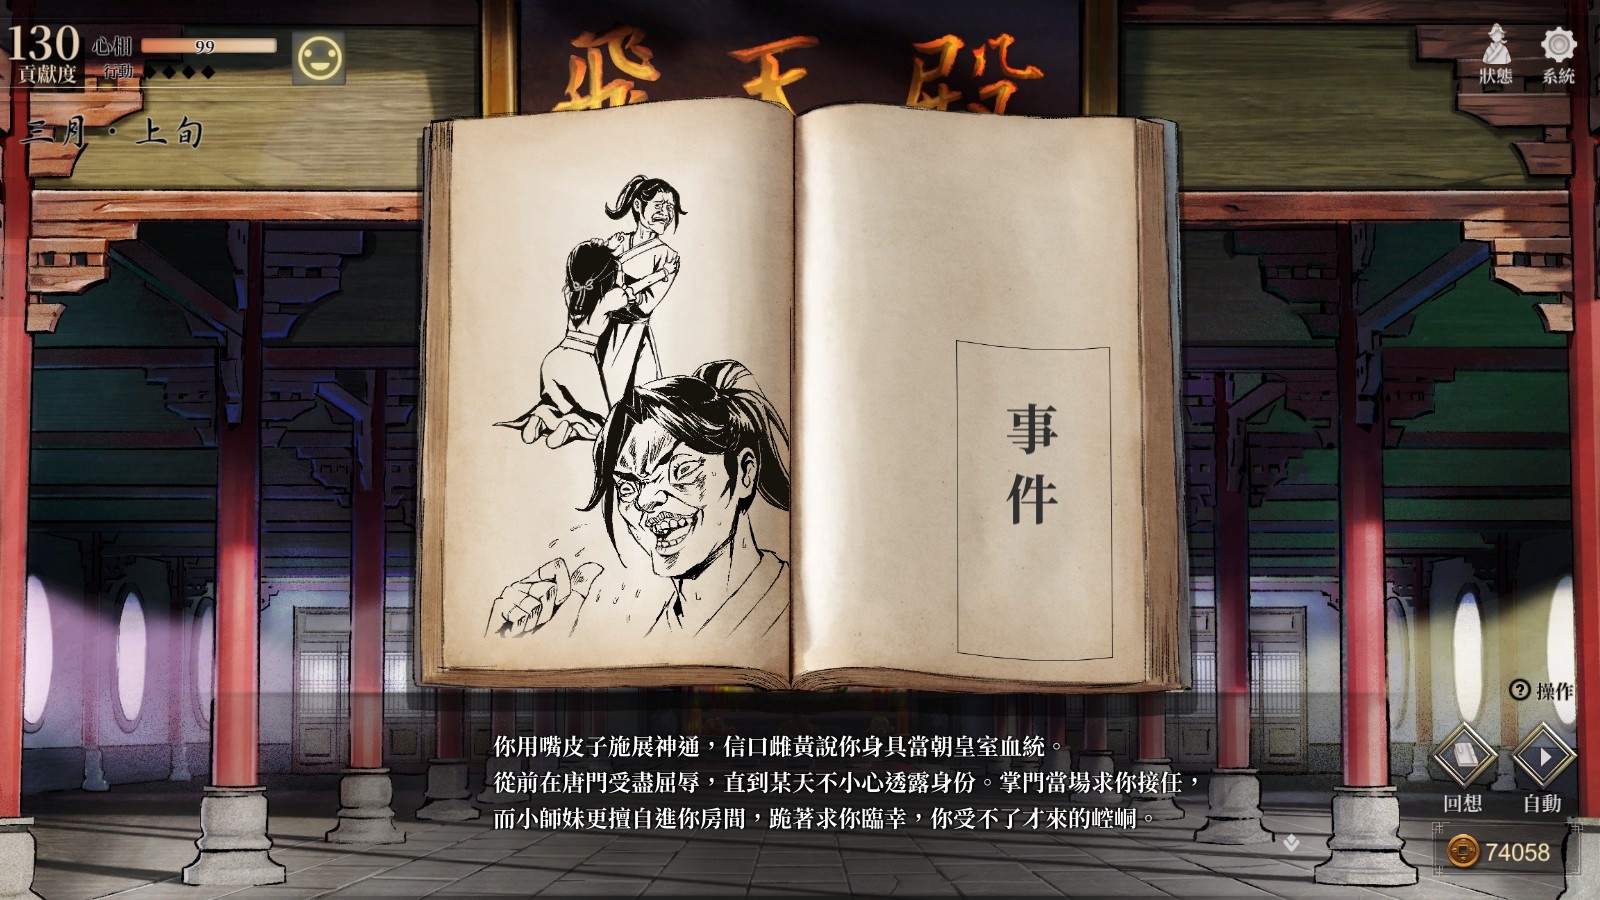 飛天殿
130
貢獻度
心相
99
行動
三月·上旬
狀態
系統
事件
你用嘴皮子施展神通，信口雌黃說你身具當朝皇室血統。
從前在唐門受盡屈辱，直到某天不小心透露身份。掌門當場求你接任，
而小師妹更擅自進你房間，跪著求你臨幸，你受不了才來的崆峒。
?操作
回想
自動
74058